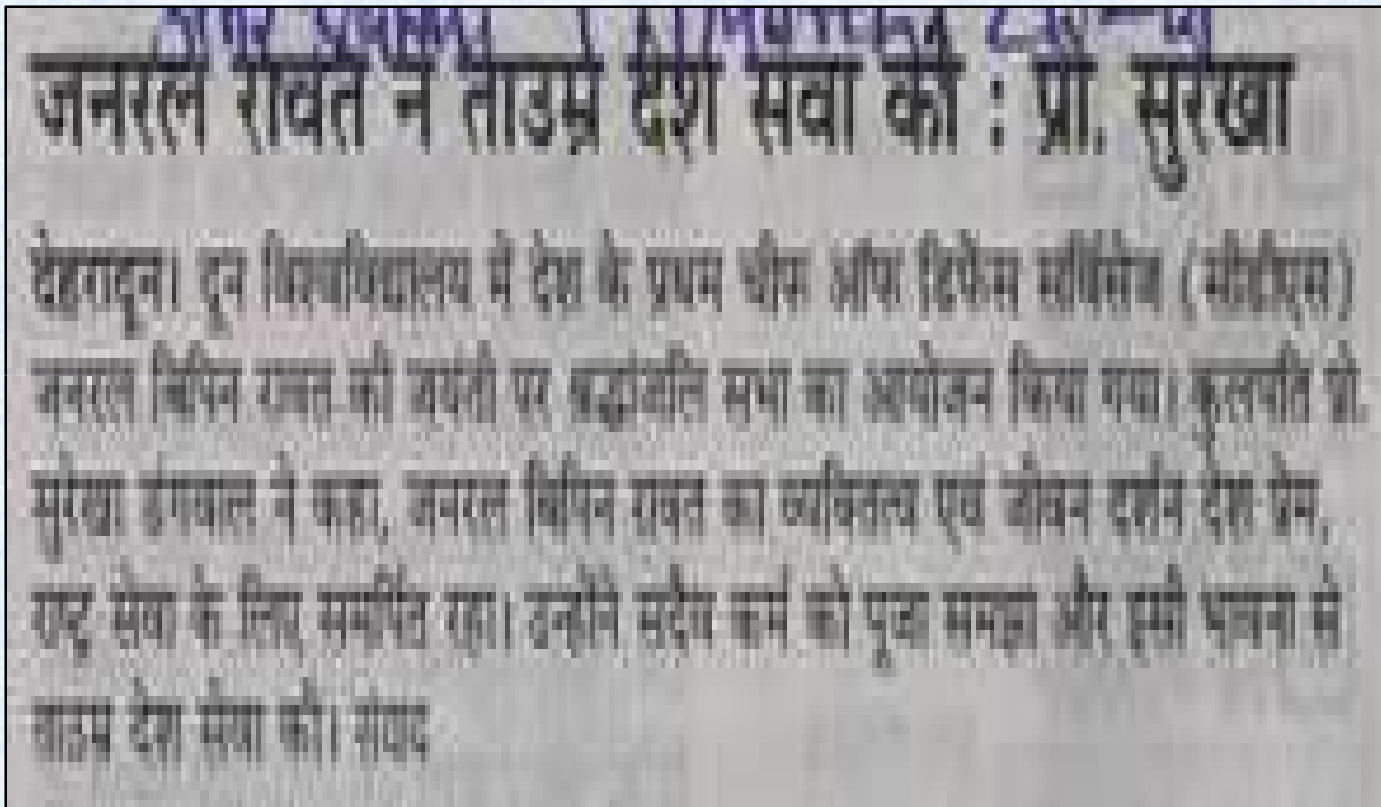 जनरल रावत ने ताउम्र देश सेवा की : प्रो. सुरेखा
देहरादून। दून विश्वविद्यालय में देश के प्रथम चीफ ऑफ डिफेंस सर्विसेज (सीडीएस)
जनरल बिपिन रावत की जयंती पर श्रद्धांजलि सभा का आयोजन किया गया। कुलपति प्रो.
सुरेखा डंगवाल ने कहा, जनरल बिपिन रावत का व्यक्तित्व एवं जीवन दर्शन देश प्रेम,
राष्ट्र सेवा के लिए समर्पित रहा। उन्होंने सदैव कर्म को पूजा समझा और इसी भावना से
ताउम्र देश सेवा की। संवाद